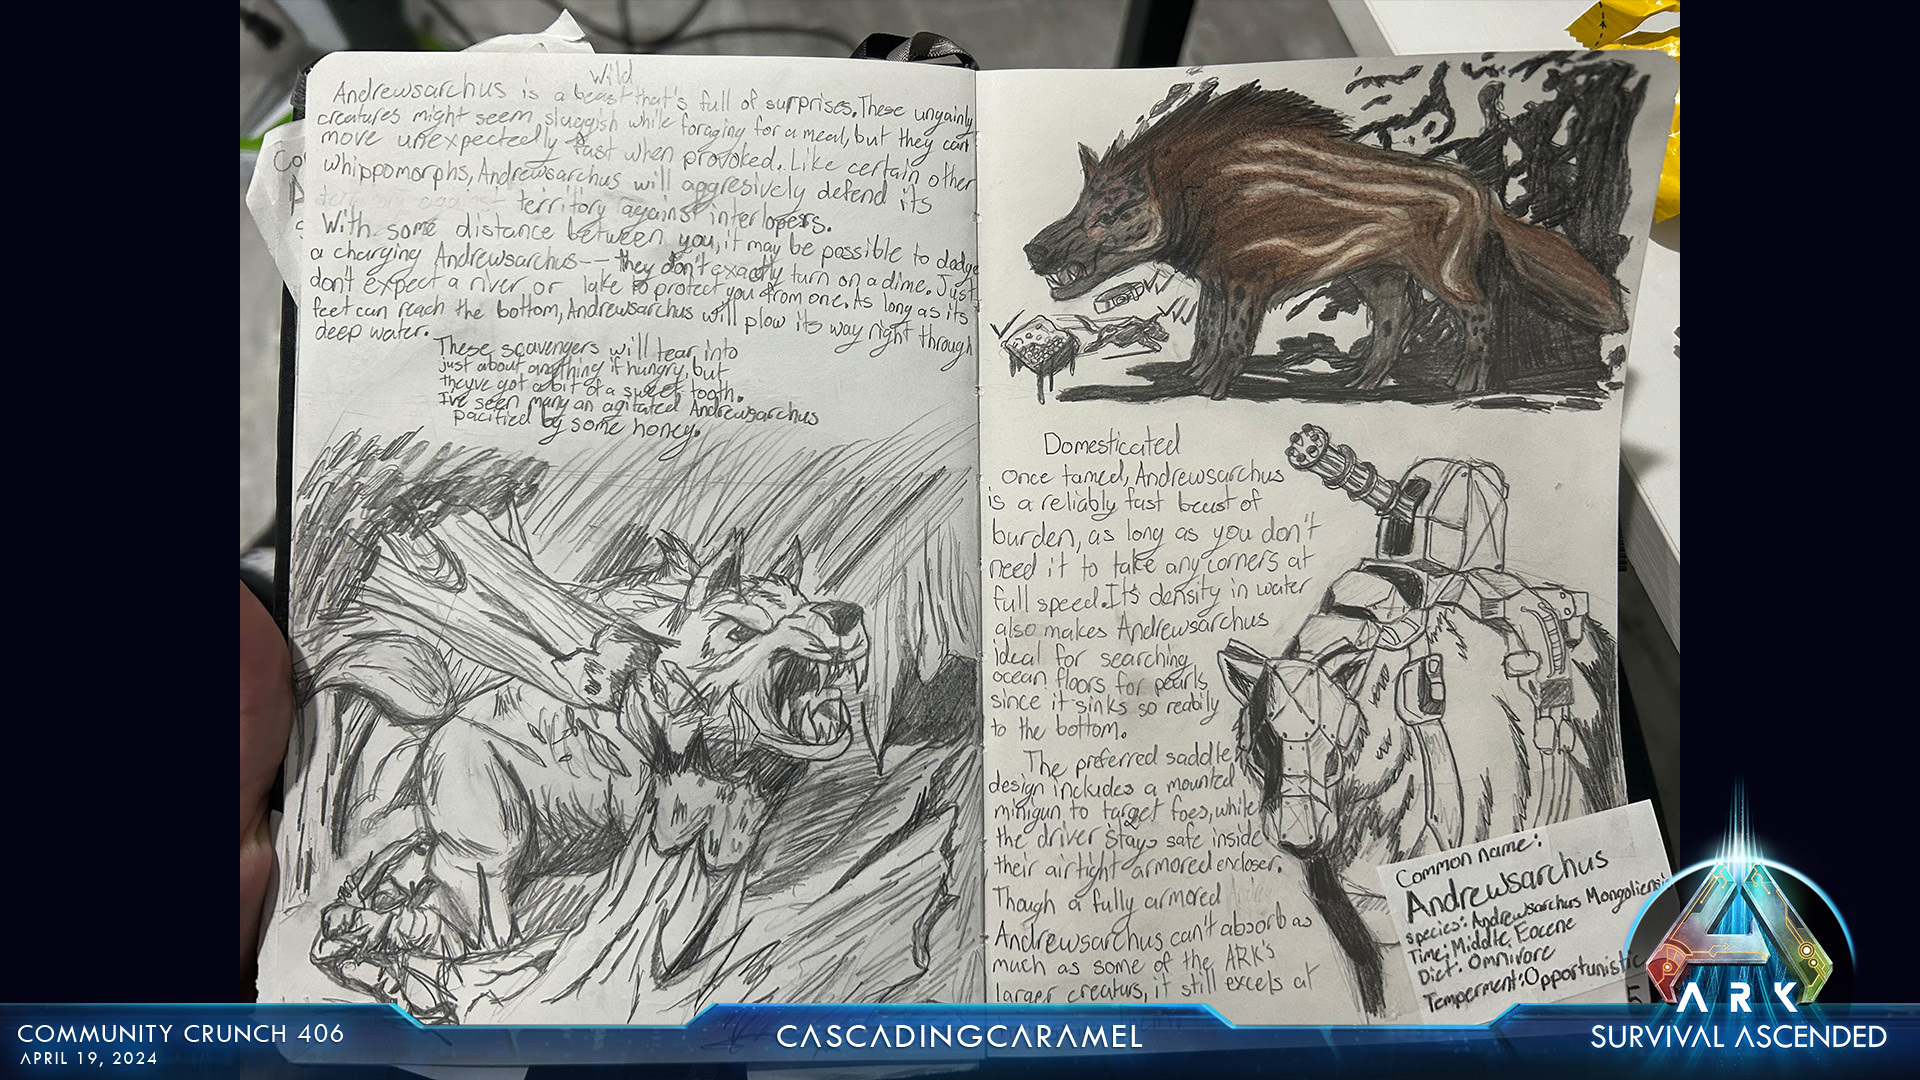 Wild
Andrewsarchus is a beast that's full of surprises. These ungainly
creatures might seem sluggish while foraging for a meal, but they can
move unexpectedly fast when provoked. Like certain other
whippomorphs, Andrewsarchus will aggresively defend its
territory against interlopers.
With some distance between you, it may be possible to dodge
a charging Andrewsarchus -- they don't exactly turn on a dime. Just
don't expect a river or lake to protect you from one. As long as its
feet can reach the bottom, Andrewsarchus will plow its way right through
deep water.
These scavengers will tear into
just about anything if hungry, but
theyve got a bit of a sweet tooth.
I've seen many an agitated Andrewsarchus
pacified by some honey.
Domesticated
Once tamed, Andrewsarchus
is a reliably fast beast of
burden, as long as you don't
need it to take any corners at
full speed. It's density in water
also makes Andrewsarchus
ideal for searching
ocean floors for pearls
since it sinks so readily
to the bottom.
The preferred saddle
design includes a mounted
minigun to target foes, while
the driver stays safe inside
their airtight armored encloser.
Though a fully armored
Andrewsarchus can't absorb as
much as some of the ARK's
larger creaturs, it still excels at
Common name:
Andrewsarchus
species: Andrewsarchus Mongoliensis
Time: Middle Eocene
Diet: Omnivore
Temperment: Opportunistic
COMMUNITY CRUNCH 406
APRIL 19, 2024
CASCADINGCARAMEL
ARK
SURVIVAL ASCENDED